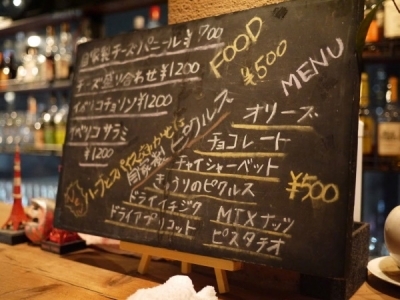 自家製チーズパニール ¥700
チーズ盛り合わせ ¥1200
イベリコチョリソ ¥1200
イベリコサラミ
¥1200
FOOD
¥500
MENU
ハーブとスパイス
自家製ピクルス
オリーブ
チョコレート
チャイシャーベット
きゅうりのピクルス
¥500
ドライイチジク
MIXナッツ
ドライアプリコット
ピスタチオ